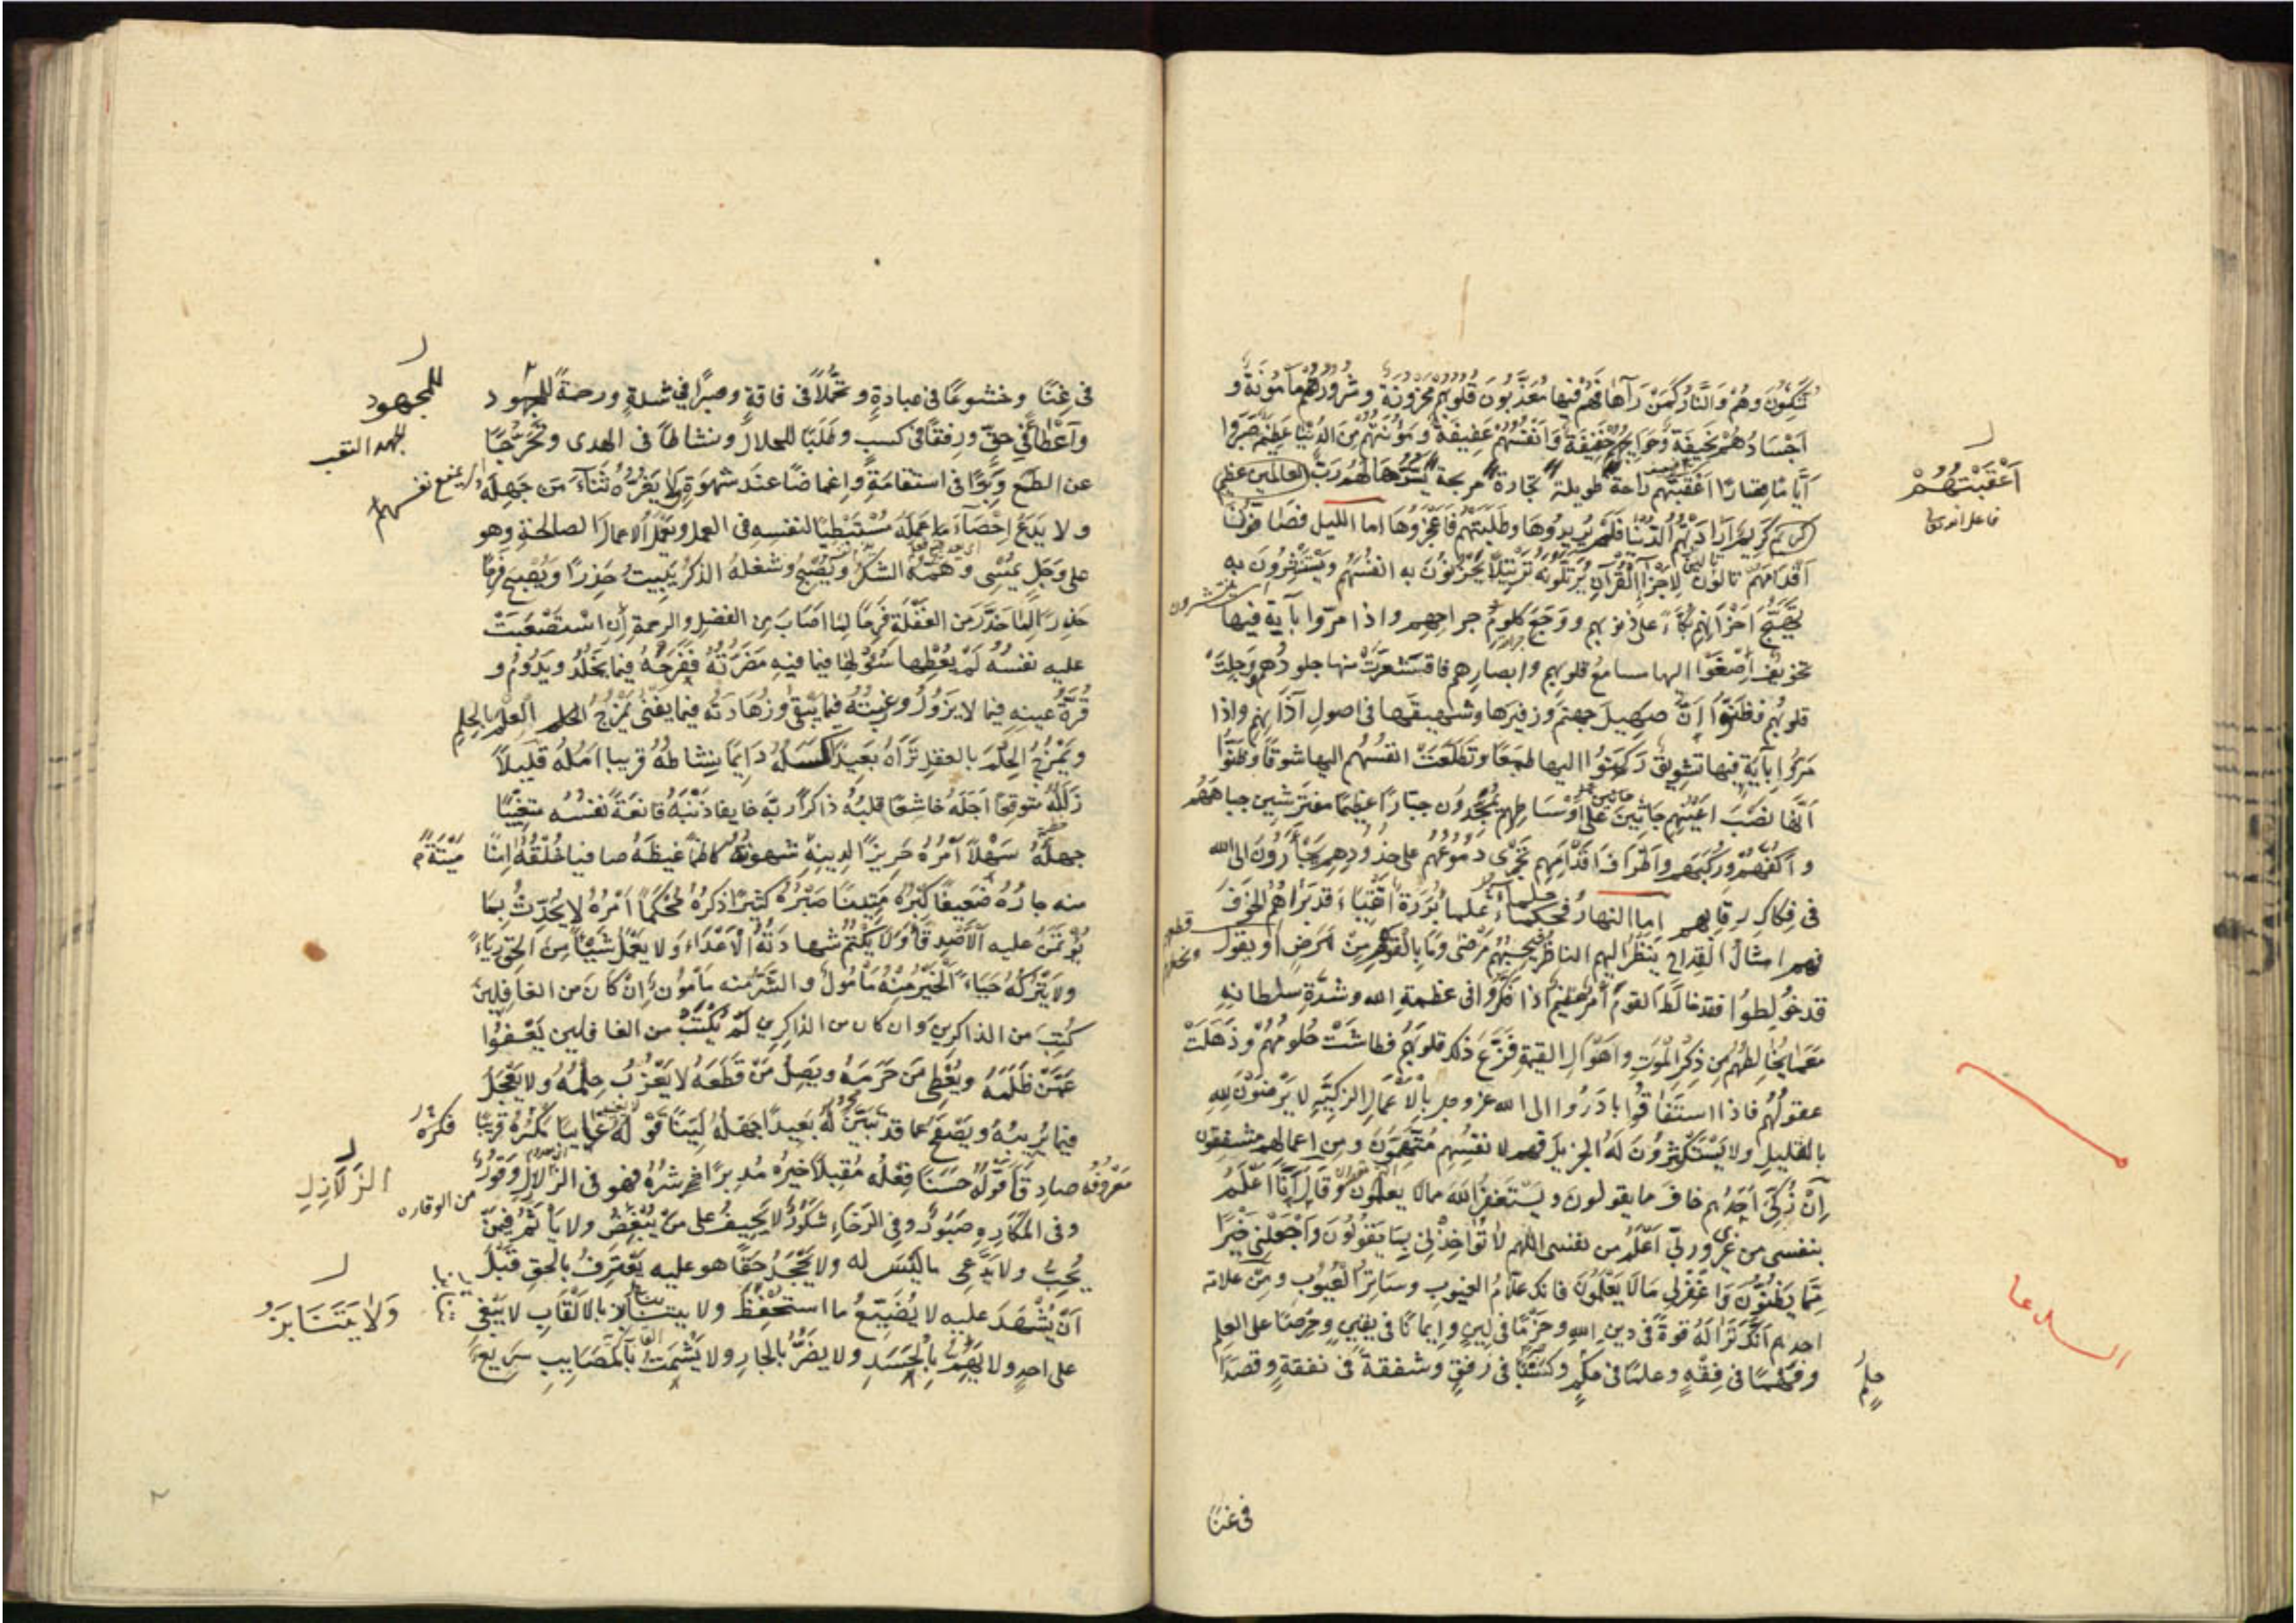 مُتَّكِئُونَ وَهُمْ وَالنَّارُ كَمَنْ رَآهَا فَهُمْ فِيهَا مُعَذَّبُونَ قُلُوبُهُمْ مَحْزُونَةٌ وَشُرُورُهُمْ مَأْمُونَةٌ وَ
أَجْسَادُهُمْ نَحِيفَةٌ وَحَوَائِجُهُمْ خَفِيفَةٌ وَأَنْفُسُهُمْ عَفِيفَةٌ وَمَؤُنَتُهُمْ مِنَ الدُّنْيَا عَظِيمَةٌ صَبَرُوا
أَيَّامًا قِصَارًا أَعْقَبَتْهُمْ رَاحَةً طَوِيلَةً تِجَارَةً مُرْبِحَةً يَسَّرَهَا لَهُمْ رَبُّ
كَرِيمٌ أَرَادَتْهُمُ الدُّنْيَا فَلَمْ يُرِيدُوهَا وَطَلَبَتْهُمْ فَأَعْجَزُوهَا أما الليل فَصَافُّونَ
أَقْدَامَهُمْ تَالُونَ لِأَجْزَاءِ الْقُرْآنِ يُرَتِّلُونَهُ تَرْتِيلًا يُحَزِّنُونَ بِهِ أَنْفُسَهُمْ وَيَسْتَثِيرُونَ بِهِ
أَحْزَانُهُمْ بُكَاءً عَلَى ذُنُوبِهِمْ وَوَجَعِ كُلُومِ جِرَاحِهِمْ وَإِذَا مَرُّوا بِآيَةٍ فِيهَا
تَخْوِيفٌ أَصْغَوْا إليها مسامع قلوبهم وأبصارهم فاقشعرت منها جلودهم وَوَجِلَتْ
قلوبهم فَظَنُّوا أَنَّ صَهِيلَ جهنم وزفيرها وشهيقها في أصول آذَانِهِمْ وإذا
مَرُّوا بِآيَةٍ فِيهَا تَشْوِيقٌ رَكَنُوا إليها طَمَعًا وَتَطَلَّعَتْ أنفسهم إليها شوقًا وَظَنُّوا
أَنَّهَا نُصْبَ أَعْيُنِهِمْ جَاثِينَ عَلَى أَوْسَاطِهِمْ يُمَجِّدُونَ جَبَّارًا عَظِيمًا مفترشين جباههم
وَأَكُفَّهُمْ وَرُكَبَهُمْ وَأَطْرَافَ أَقْدَامِهِمْ تَجْرِي دُمُوعُهُمْ عَلَى خُدُودِهِمْ يَجْأَرُونَ إِلَى الله
فِي فِكَاكِ رِقَابِهِمْ أما النهار فحكماء علماء بَرَرَةٌ أَتْقِيَاءُ قد بَرَاهُمُ الْخَوْفُ
فهم أمثال القِدَاحِ يَنْظُرُ إليهم الناظر فَيَحْسِبُهُمْ مَرْضَى وَمَا بِالْقَوْمِ مِنْ مَرَضٍ أو يقول
قد خُولِطُوا فقد خالط القوم أمر عظيم إذا فَكَّرُوا في عظمة الله وشدة سلطانه
مَعَ مَا يُخَالِطُهُمْ مِنْ ذِكْرِ الْمَوْتِ وَأَهْوَالِ القيمة فَزَّعَ ذلك قلوبهم فَطَاشَتْ حُلُومُهُمْ وَذَهَلَتْ
عقولهم فإذا استفاقوا بَادَرُوا إلى الله عز وجل بِالْأَعْمَالِ الزكية لَا يَرْضَوْنَ لِلَّهِ
بِالْقَلِيلِ وَلَا يَسْتَكْثِرُونَ لَهُ الْجَزِيلَ فهم لأنفسهم مُتَّهِمُونَ وَمِنْ أعمالهم مشفقون
إِنْ زُكِّيَ أَحَدُهُمْ خَافَ مما يقولون وَيَسْتَغْفِرُ اللَّهَ مما لا يعلمون وَقَالَ أَنَا أَعْلَمُ
بنفسي من غيري وَرَبِّي أَعْلَمُ من نفسي اللهم لا تُؤَاخِذْنِي بِمَا يَقُولُونَ وَاجْعَلْنِي خَيْرًا
مِمَّا يَظُنُّونَ وَاغْفِرْ لِي مَا لَا يَعْلَمُونَ فإنك علام الغيوب وَسَاتِرُ الْعُيُوبِ وَمِنْ علامة
أحدهم أَنَّكَ تَرَى لَهُ قُوَّةً فِي دِينِ اللهِ وَحَزْمًا فِي لِينٍ وَإِيمَانًا فِي يَقِينٍ وَحِرْصًا عَلَى العلم
وَفَهْمًا فِي فِقْهٍ وعلمًا في حِلْمٍ وَكَسْبًا فِي رِفْقٍ وشفقة في نفقة وقصدًا
أَعْقَبَتْهُمْ
حلم
في غنًا
في غِنًا وخشوعًا في عبادةٍ وتَحَمُّلًا في فاقةٍ وصبرًا في شدةٍ ورحمةً للمجهود
وَإِعْطَاءً فِي حَقٍّ وَرِفْقًا في كسبٍ وطَلَبًا للحلال ونشاطًا في الهدى وَتَحَرُّجًا
عن الطمع وَبِرًّا في استقامةٍ وإغماضًا عند شهوةٍ لا يَغُرُّهُ ثَنَاءُ مَنْ جَهِلَهُ
ولا يَدَعُ إِحْصَاءَ مَا عَمِلَهُ مُسْتَبْطِئًا لنفسه في العمل وَيَعْمَلُ الأعمال الصالحة وهو
على وَجَلٍ يُمْسِي وَهَمُّهُ الشكر وَيُصْبِحُ وشغله الذكر يَبِيتُ حَذِرًا وَيُصْبِحُ فَرِحًا
حَذِرًا لِمَا حُذِّرَ مِنَ الغَفْلَةِ فَرِحًا لِمَا أَصَابَ مِنَ الفضل والرحمة إِنِ اسْتَصْعَبَتْ
عليه نفسُهُ لَمْ يُعْطِهَا سُؤْلَهَا فيما فيه مَضَرَّتُهُ فَفَرَحُهُ فِيمَا يَخْلُدُ وَيَدُومُ و
قُرَّةُ عَيْنِهِ فِيمَا لا يَزُولُ ورغبته فيما يبقى وَزَهَادَتُهُ فيما يفنى يَمْزُجُ العلم بالحلم
وَيَمْزُجُ الحِلْمَ بالعقل تَرَاهُ بَعِيدًا كَسَلُهُ دَائِمًا نشاطه قريبًا أَمَلُهُ قَلِيلًا
زَلَلُهُ متوقعًا أَجَلَهُ خاشعًا قلبُهُ ذاكرًا رَبَّهُ خائفًا ذَنْبَهُ قَانِعَةً نَفْسُهُ متغيبًا
جَهْلُهُ سَهْلًا أَمْرُهُ حَرِيزًا لِدِينِهِ شهوته كاظمًا غيظَهُ صافيا خُلْقُهُ آمِنًا مَيِّتَةً
منه جارُهُ ضَعِيفًا كِبْرُهُ مَتِينًا صَبْرُهُ كثيرًا ذكرُهُ مُحْكَمًا أَمْرُهُ لا يُحَدِّثُ بِمَا
يُؤْتَمَنُ عليه الْأَصْدِقَاءُ وَلَا يَكْتُمُ شهادته الْأَعْدَاءَ ولا يَعْمَلُ شَيْئًا مِنَ الحق رِيَاءً
ولا يَتْرُكُهُ حَيَاءً الخَيْرُ مِنْهُ مَأْمُولٌ وَالشَّرُّ مِنْهُ مَأْمُونٌ إِنْ كَانَ من الغافلين
كُتِبَ من الذاكرين وإن كان من الذاكرين لَمْ يُكْتَبْ من الغافلين يَعْفُو
عَمَّنْ ظَلَمَهُ وَيُعْطِي مَنْ حَرَمَهُ وَيَصِلُ مَنْ قَطَعَهُ لا يَعْزُبُ حِلْمُهُ ولا يَعْجَلُ
فيما يُرِيبُهُ وَيَصْفَحُ عما قد تَبَيَّنَ لَهُ بَعِيدًا جَهْلُهُ لَيِّنًا قَوْلُهُ غائبًا مَكْرُهُ قريبًا
مَعْرُوفُهُ صادقًا قَوْلُهُ حَسَنًا فِعْلُهُ مُقْبِلًا خَيْرُهُ مُدْبِرًا شَرُّهُ فهو في الزلازل وَقُورٌ
وفي المَكَارِهِ صَبُورٌ وفي الرَّخَاءِ شَكُورٌ لا يَحِيفُ على مَنْ يُبْغِضُ ولا يَأْثَمُ فِيمَنْ
يُحِبُّ ولا يَدَّعِي ما لَيْسَ له ولا يَجْحَدُ حَقًّا هو عليه يَعْتَرِفُ بالحق قَبْلَ
أَنْ يُشْهَدَ عليه لا يُضَيِّعُ ما استُحْفِظَ ولا يتنابز بالألقاب لا يَبْغِي
على أحدٍ ولا يَهُمُّ بِالْحَسَدِ ولا يَضُرُّ بالجار ولا يَشْمَتُ بالمصائب سَرِيعٌ
للمجهود
الجهد التعب
فكره
الزَّلَازِلِ
من الوقار
وَلَا يَتَنَابَزُ